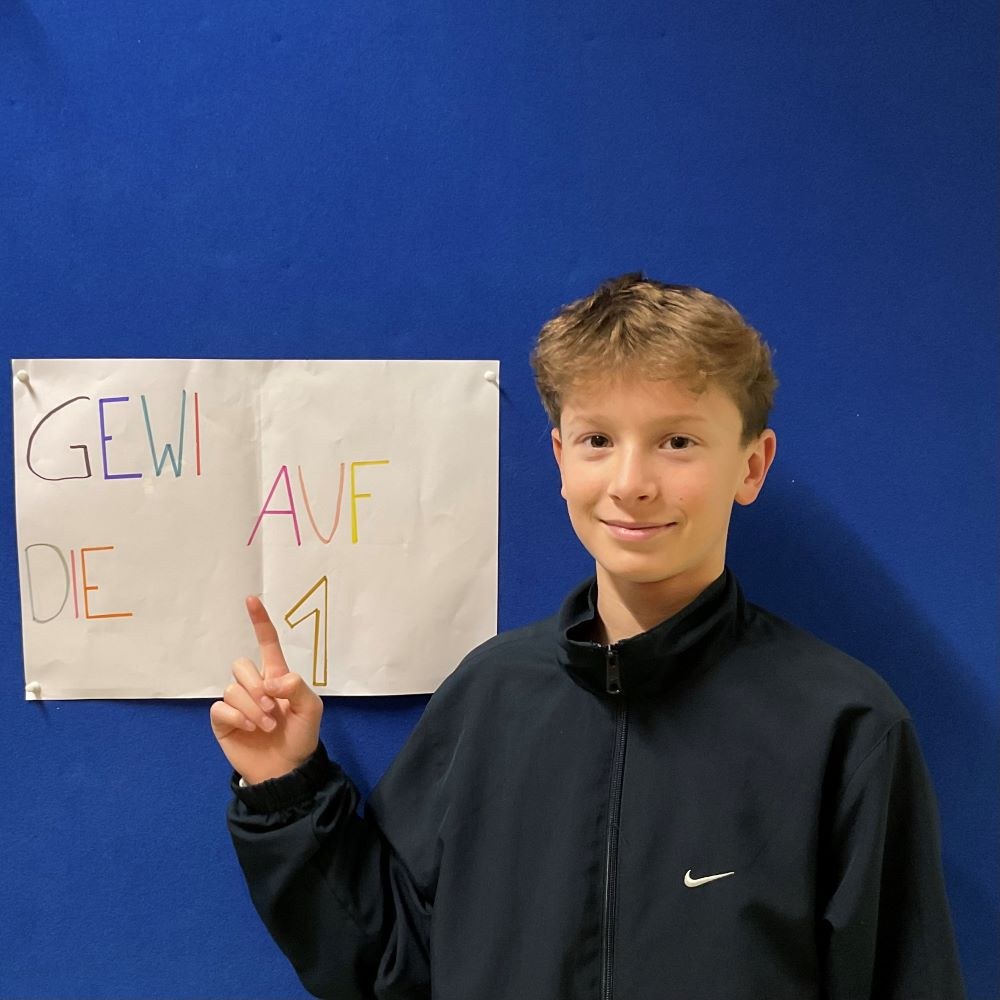 GEWI
AUF
DIE
1